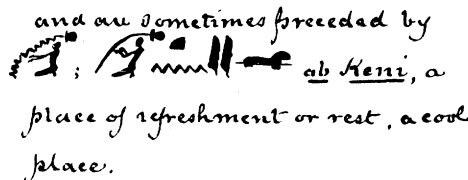 and are sometimes preceded by
; ab Keni, a
place of refreshment or rest, a cool
place.